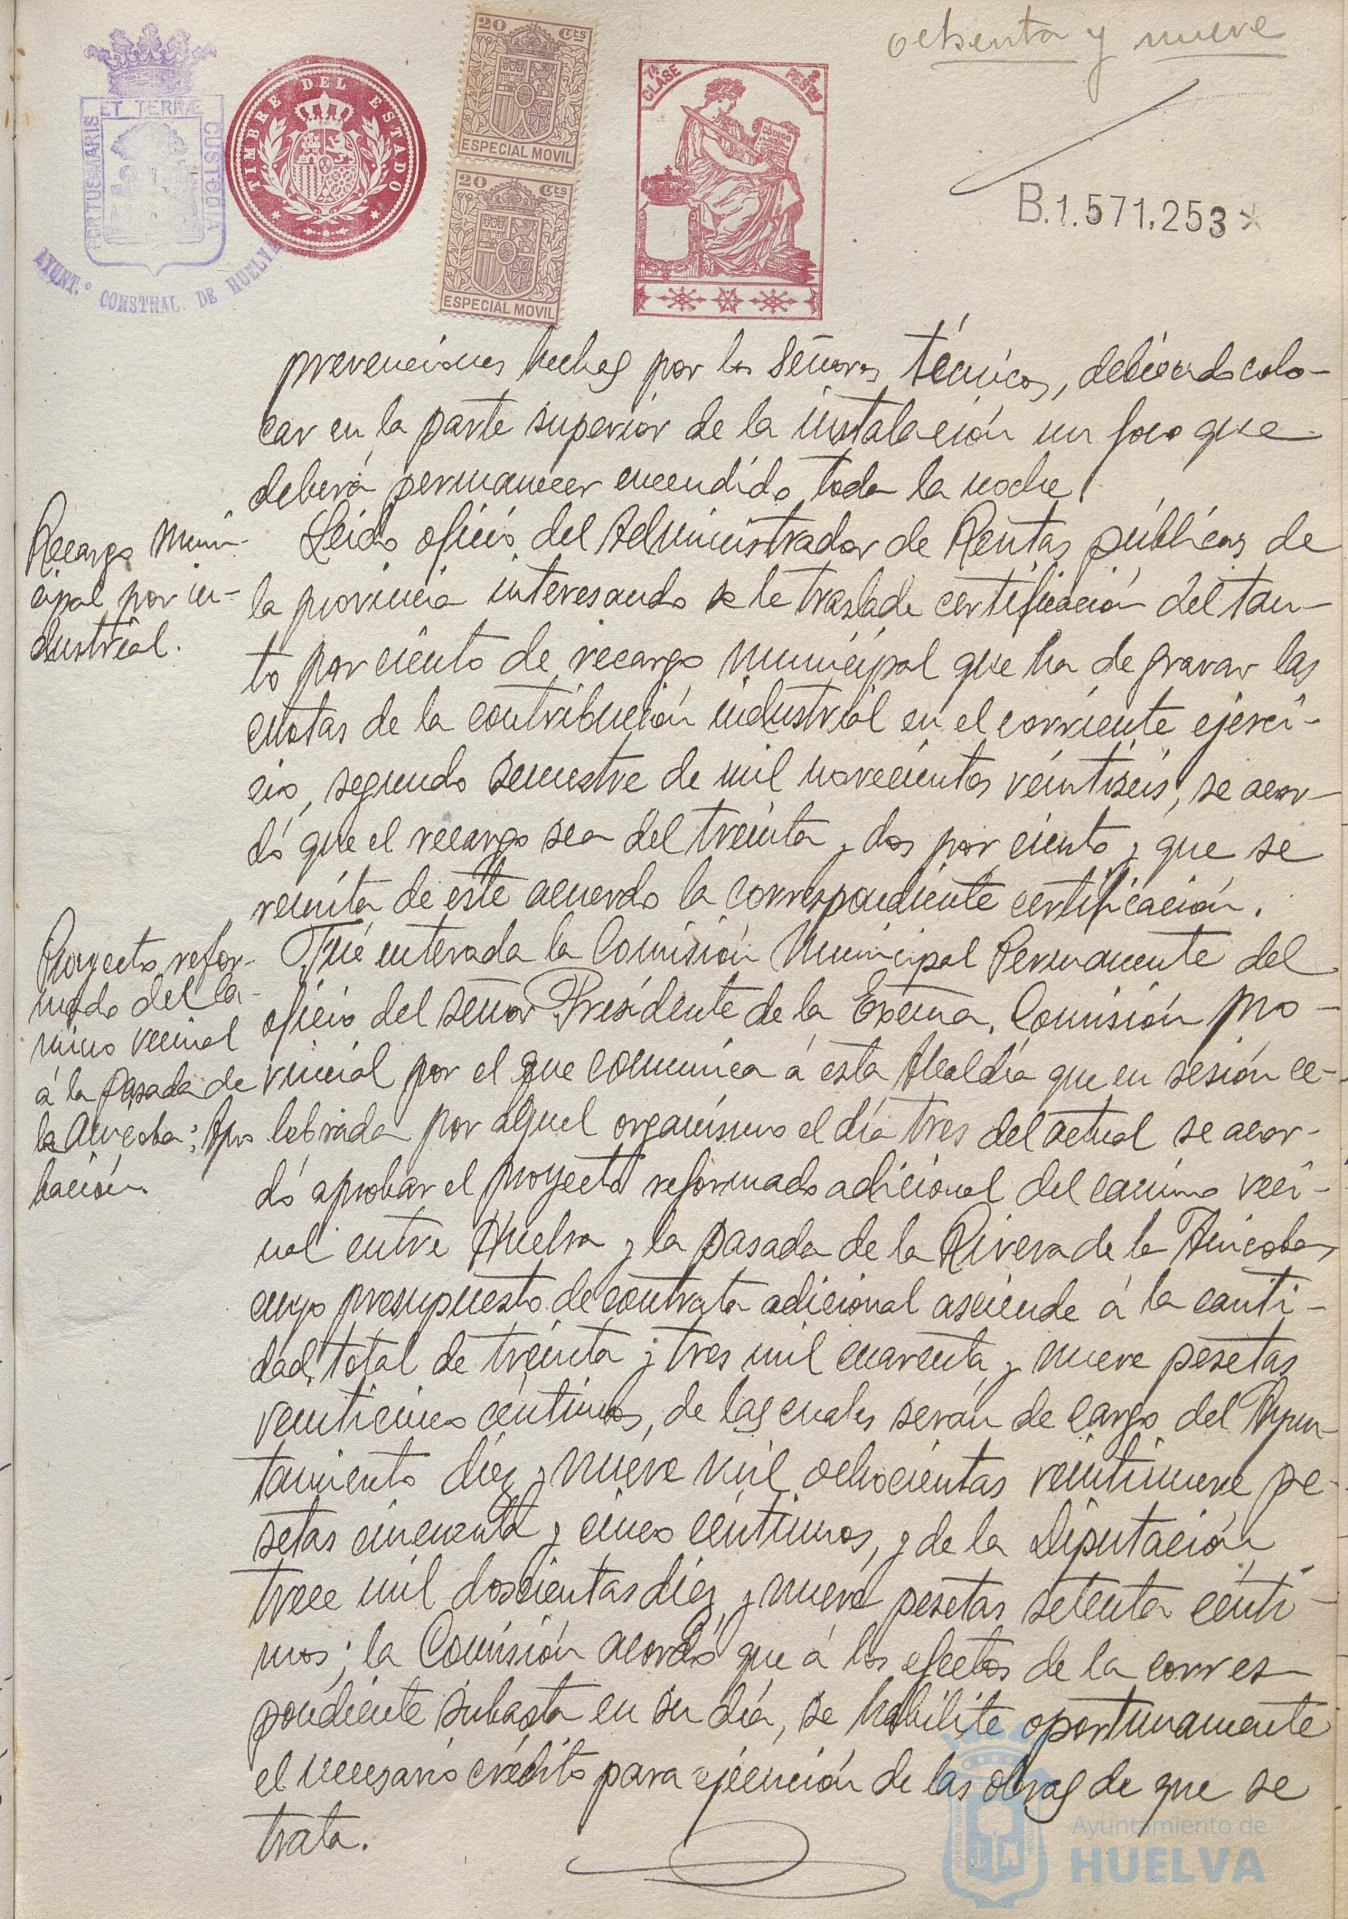 ochenta y nueve
PORTUS MARIS ET TERRÆ CUSTODIA
AYUNT.º CONSTNAL. DE HUELVA
TIMBRE DEL ESTADO
20 Cts
ESPECIAL MOVIL
20 Cts
ESPECIAL MOVIL
7ª CLASE
2 PESETAS
CÓDIGO
B.1.571.253*
prevenciones hechas por los señores técnicos, debiendo colo-
car en la parte superior de la instalación un foco que
deberá permanecer encendido toda la noche.
Recargo Muni-
cipal por in-
dustrial.
Leido oficio del Administrador de Rentas públicas de
la provincia interesando se le traslade certificación del tan-
to por ciento de recargo municipal que ha de gravar las
cuotas de la contribución industrial en el corriente ejerci-
cio, segundo semestre de mil novecientos veintiseis, se acor-
dó que el recargo sea del treinta y dos por ciento y que se
remita de este acuerdo la correspondiente certificación.
Proyecto refor-
mado del ca-
mino vecinal
á la pasada de
la Anicoba: Apro
bación.
Fué enterada la Comisión Municipal Permanente del
oficio del señor Presidente de la Excma. Comisión pro-
vincial por el que comunica á esta Alcaldía que en sesión ce-
lebrada por aquel organismo el día tres del actual se acor-
dó aprobar el proyecto reformado adicional del camino veci-
nal entre Huelva y la pasada de la Rivera de la Anicoba,
cuyo presupuesto de contrata adicional asciende á la canti-
dad total de treinta y tres mil cuarenta y nueve pesetas
veinticinco céntimos, de las cuales serán de cargo del Ayun-
tamiento diez y nueve mil ochocientas veintinueve pe-
setas cincuenta y cinco céntimos, y de la Diputación
trece mil doscientas diez y nueve pesetas setenta cénti-
mos; la Comisión acordó que á los efectos de la corres-
pondiente subasta en su día, se habilite oportunamente
el necesario crédito para ejecución de las obras de que se
trata.
Ayuntamiento de
HUELVA